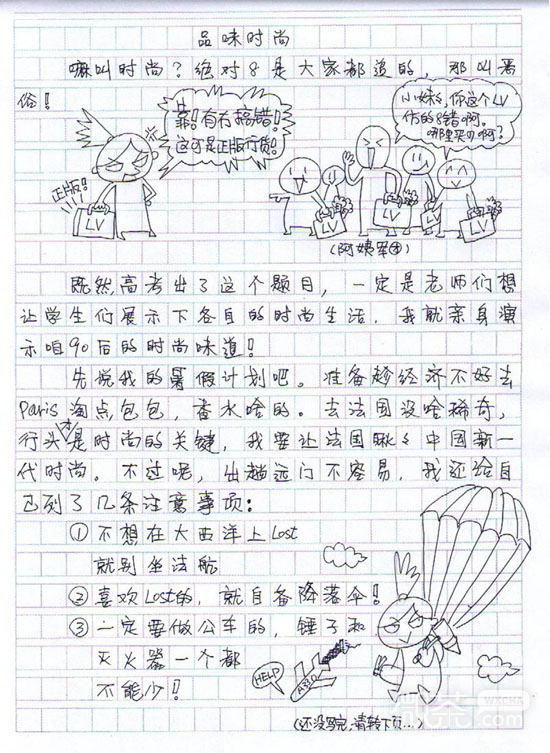 品味时尚
嘛叫时尚？绝对8是大家都追的，那叫恶
俗！
靠！有冇搞错！
这可是正版行货！
小妹妹，你这个LV
仿的8错啊。
哪里买的啊？
正版！
LV
LV
LV
LV
(阿姨军团)
既然高考出了这个题目，一定是老师们想
让学生们展示下各自的时尚生活，我就亲身演
示咱90后的时尚味道！
先说我的暑假计划吧。准备趁经济不好去
Paris淘点包包，香水啥的。去法国没啥稀奇，
行头才是时尚的关键，我要让法国瞅瞅中国新一
代时尚。不过呢，出趟远门不容易，我还给自
己列了几条注意事项：
①不想在大西洋上Lost
就别坐法航
②喜欢Lost的，就自备降落伞！
③一定要做公车的，锤子和
灭火器一个都
不能少！
HELP
A330
(还没写完，请转下页...)